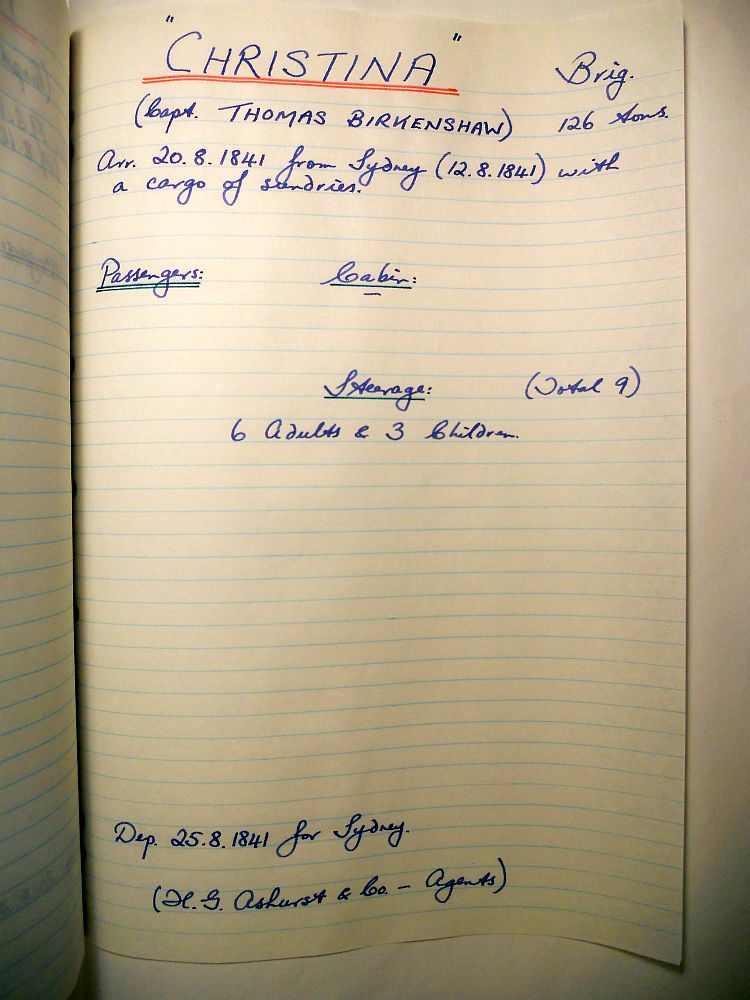 "CHRISTINA" Brig.
(Capt. THOMAS BIRKENSHAW) 126 tons.
Arr. 20.8.1841 from Sydney (12.8.1841) with
a cargo of sundries.
Passengers: Cabin:
–
Steerage: (Total 9)
6 Adults & 3 Children.
Dep. 25.8.1841 for Sydney.
(H.G. Ashurst & Co. – Agents)